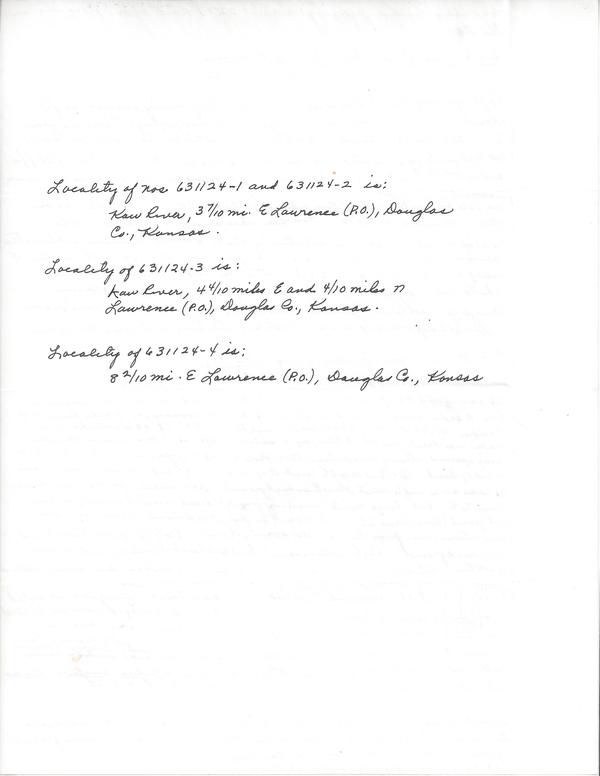 Locality of nos 631124-1 and 631124-2 is:
Kaw River, 3 7/10 mi. E Lawrence (P.O.), Douglas
Co., Kansas.
Locality of 631124-3 is:
Kaw River, 4 4/10 miles E and 4/10 miles n
Lawrence (P.O.), Douglas Co., Kansas.
Locality of 631124-4 is:
8 2/10 mi. E Lawrence (P.O.), Douglas Co., Kansas